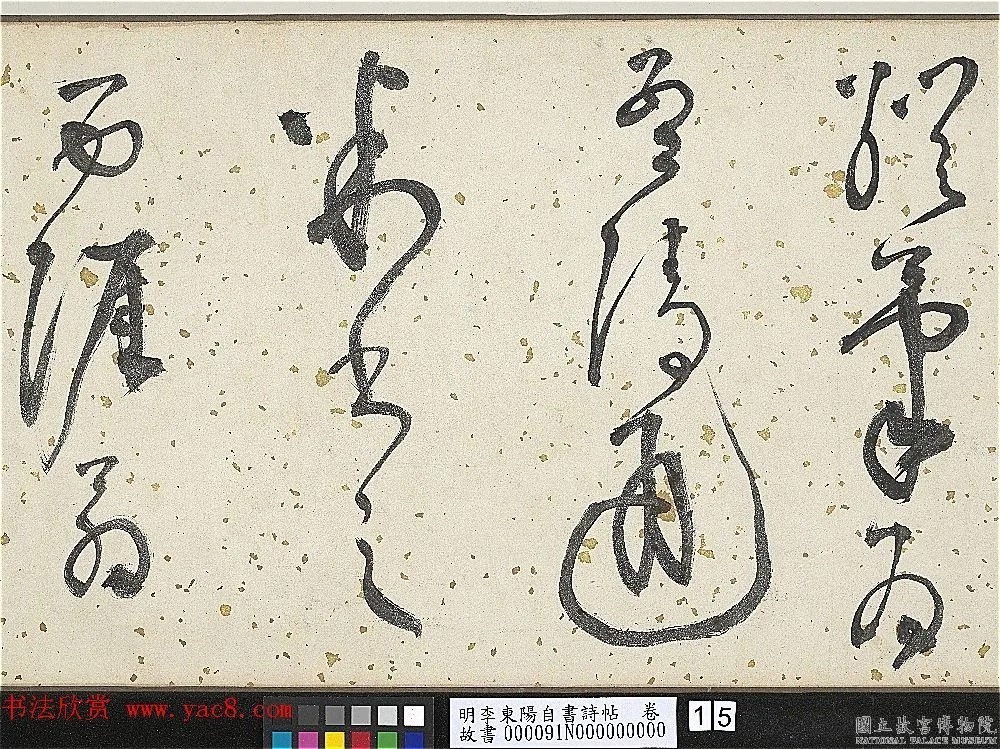 筆為
清通
判書之
西涯翁
书法欣赏 www.yac8.com
明李東陽自書詩帖 卷
故書 000091N000000000
15
國立故宮博物院
NATIONAL PALACE MUSEUM